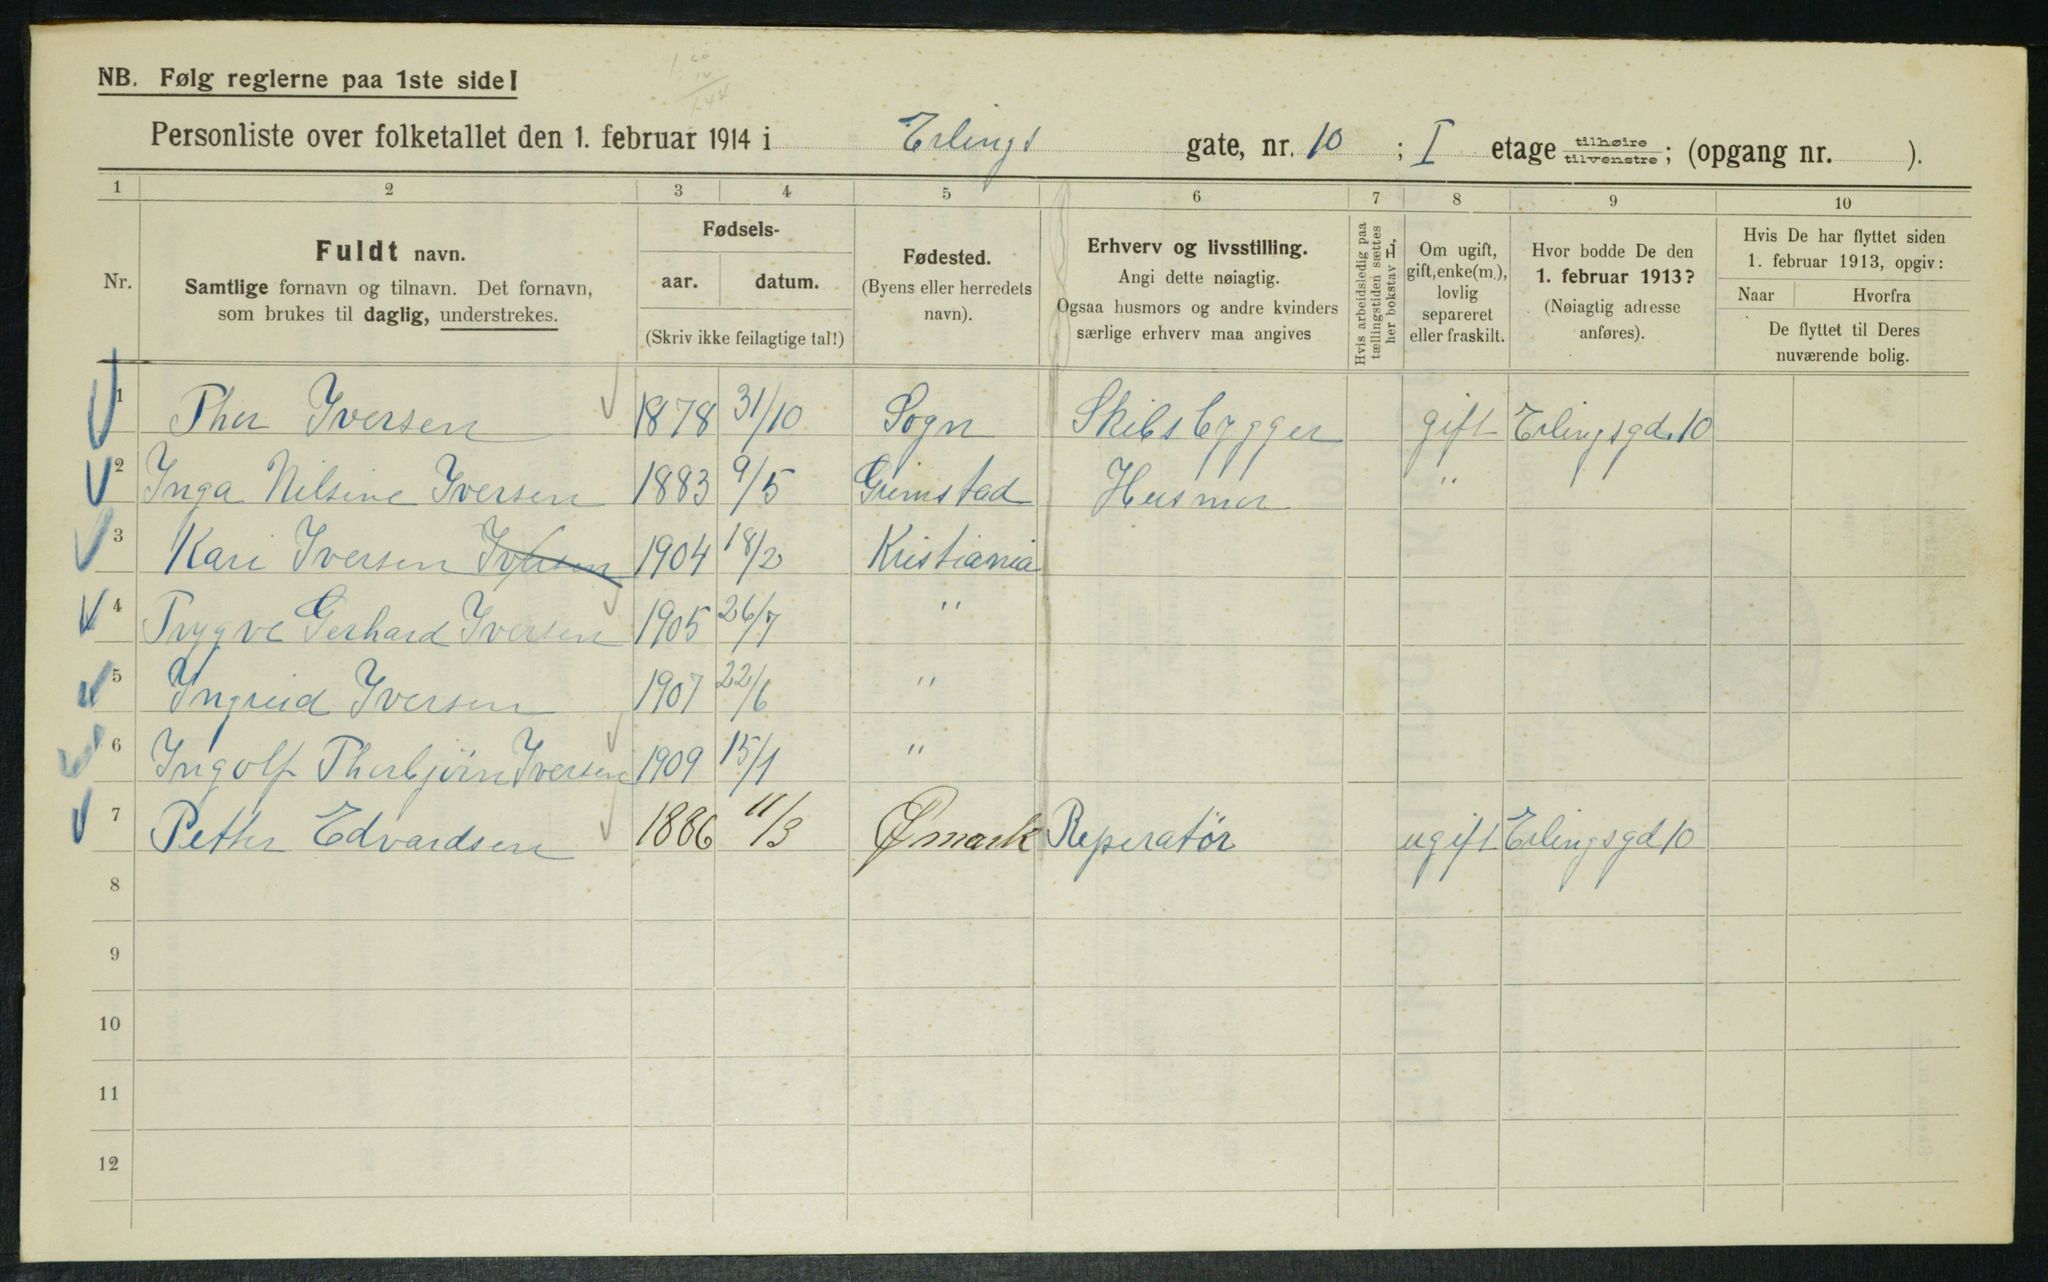 NB. Følg reglerne paa 1ste side!
Personliste over folketallet den 1. februar 1914 i Erlings gate, nr. 10 ; I etage tilhøire tilvenstre; (opgang nr. ).
1 2 3 4 5 6 7 8 9 10
Nr.
Fuldt navn.
Samtlige fornavn og tilnavn. Det fornavn,
som brukes til daglig, understrekes.
Fødsels-
aar. datum.
(Skriv ikke feilagtige tal!)
Fødested.
(Byens eller herredets
navn).
Erhverv og livsstilling.
Angi dette nøiagtig.
Ogsaa husmors og andre kvinders
særlige erhverv maa angives
Hvis arbeidsledig paa
tællingstiden sættes
her bokstav L.
Om ugift,
gift, enke(m.),
lovlig
separeret
eller fraskilt.
Hvor bodde De den
1. februar 1913?
(Nøiagtig adresse
anføres).
Hvis De har flyttet siden
1. februar 1913, opgiv:
Naar Hvorfra
De flyttet til Deres
nuværende bolig.
1 Ther Iversen 1878 31/10 Sogn Skibsbygger gift Erlingsgd. 10
2 Inga Nilsine Iversen 1883 9/5 Grimstad Husmor "
3 Kari Iversen Iversen 1904 18/2 Kristiania
4 Trygve Gerhard Iversen 1905 26/7 "
5 Ingrid Iversen 1907 22/6 "
6 Ingolf Thorbjørn Iversen 1909 15/1 "
7 Petter Edvardsen 1886 11/3 Ømark Reperatør ugift Erlingsgd 10
8
9
10
11
12